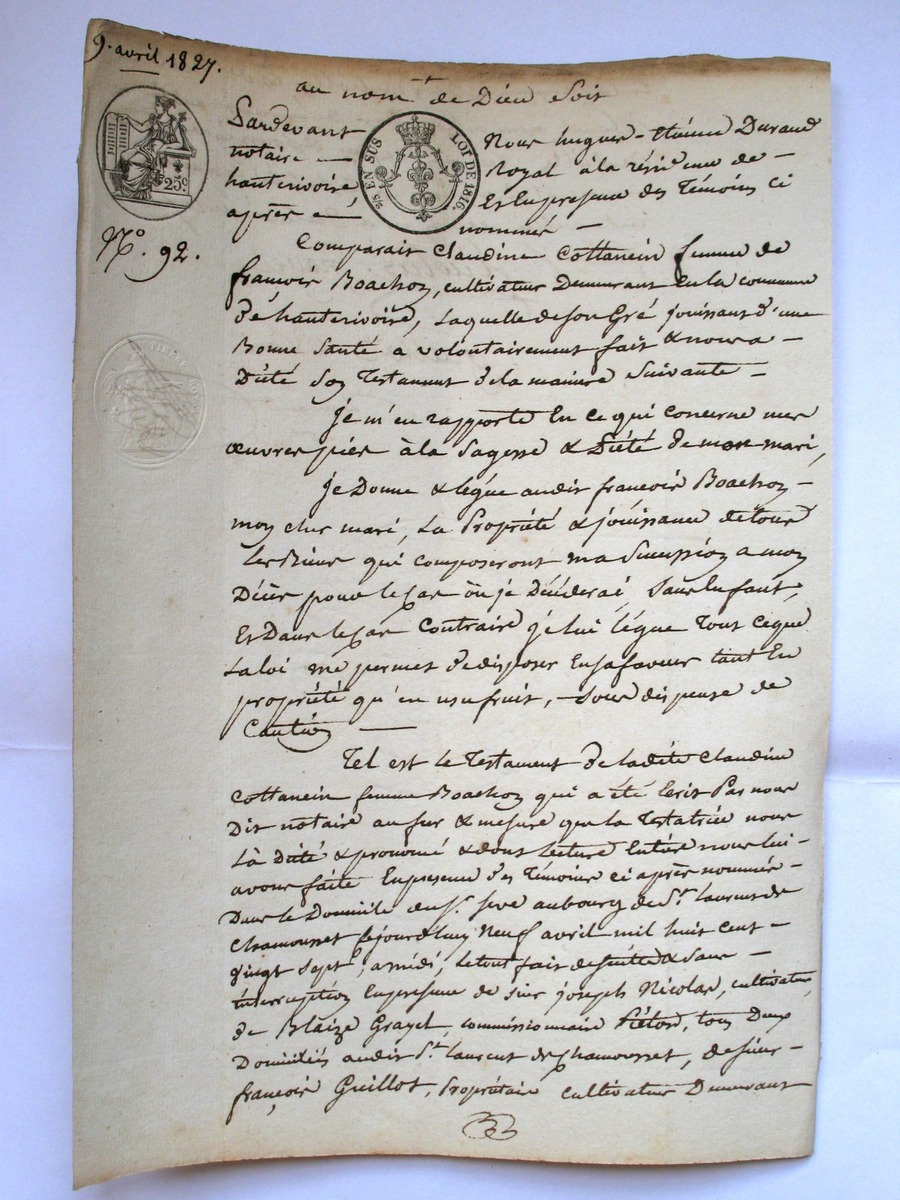 9. avril 1827.
au nom de Dieu Soit
25c.
25 EN SUS LOI DE 1816.
N° 92.
Pardevant Nous hugues-Etienne Durand
notaire Royal à la résidence de
hauterivoire Et En presence des Témoins ci
après nommés
Comparait Claudine Cottancin femme de
françois Boachon, cultivateur Demeurant En la commune
d'hauterivoire, Laquelle de son Gré jouissant d'une
Bonne Santé a volontairement fait & nous a
Dicté Son Testament de la maniere Suivante
Je m'en rapporte En ce qui concerne mes
œuvres pies à la Sagesse & Piété de mon mari,
je Donne & légue audit françois Boachon
mon cher mari, La Propriété & jouissance de tous
Les Biens qui composeront ma Succession a mon
Décès pour le cas où je Décéderai Sans Enfant,
Et Dans le cas Contraire je lui légue Tout ce que
La loi me permet de disposer En sa faveur tant En
propriété qu'en usufruit, Sous dispense de
Caution
Tel est le Testament de ladite Claudine
Cottancin femme Boachon qui a été Ecrit Par nous
Dit notaire au fur & mesure que la Testatrice nous
L'à Dicté & prononcé & dont Lecture Entière nous lui
avons faite En presence des Témoins ci après nommés
Dans le Domicile du Sr. seve au bourg de St. Laurent de
Chamousset Cejourdhuy Neuf avril mil huit cent
vingt sept, a midi, Le tout fait de suite & sans
interruption En presence de sieur joseph Nicolas, cultivateur,
de Blaize Grayel, commissionnaire Piéton, tous Deux
Domiciliés audit St. Laurent de Chamousset, de sieur
françois Guillot, Propriétaire cultivateur Demeurant